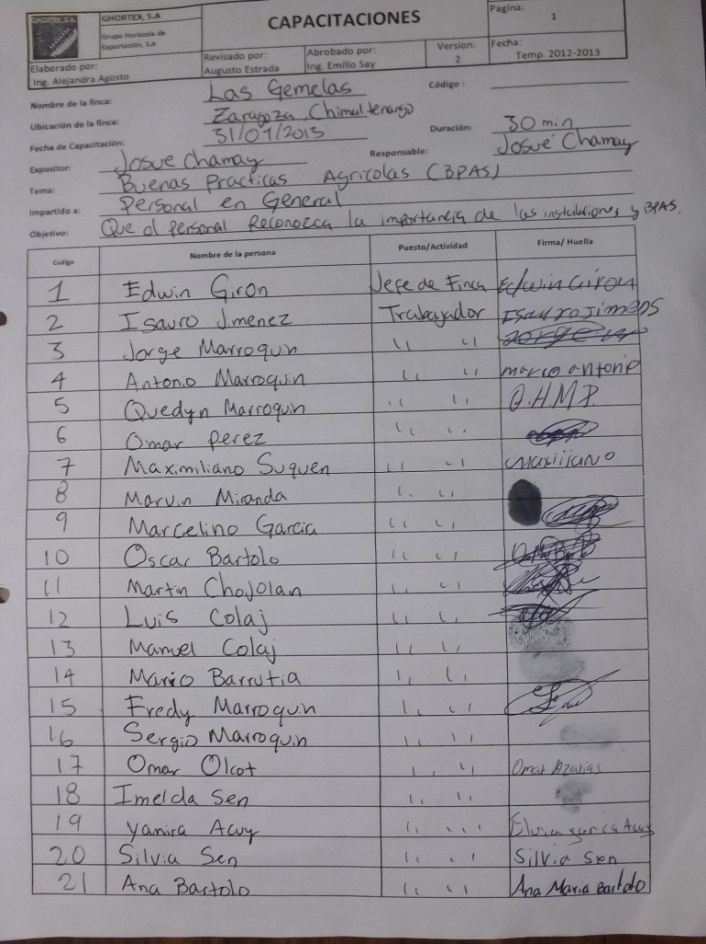 GHORTEX, S.A
GHORTEX, S.A
Grupo Hortícola de
Exportación, S.A
CAPACITACIONES
Pagina:
1
Elaborado por:
Ing. Alejandra Agosto
Revisado por:
Augusto Estrada
Abrobado por:
Ing. Emilio Say
Version:
2
Fecha:
Temp. 2012-2013
Nombre de la finca: Las Gemelas Código :
Ubicación de la finca: Zaragoza, Chimaltenango
Fecha de Capacitación: 31/01/2013 Duración: 30 min
Expositor: Josue Chamay Responsable: Josué Chamay
Tema: Buenas Practicas Agricolas (BPAS)
Impartido a: Personal en General
Objetivo: Que el personal Reconozca la importancia de las instalaciones y BPAS.
Código Nombre de la persona Puesto/Actividad Firma/ Huella
1 Edwin Giron Jefe de Finca Edwin Giron
2 Isauro Jmenez Trabajador Isauro Jimens
3 Jorge Marroquin " "
4 Antonio Marroquin " " marco antonio
5 Quedyn Marroquin " " Q.H.M.P.
6 Omar perez " "
7 Maximiliano Suquen " "
8 Marvin Miranda " "
9 Marcelino Garcia " "
10 Oscar Bartolo " "
11 Martin Chojolan " "
12 Luis Colaj " "
13 Manuel Colaj " "
14 Mario Barrutia " "
15 Fredy Marroquin " "
16 Sergio Marroquin " "
17 Omar Olcot " " Omar Azarias
18 Imelda Sen " "
19 Yanira Acuy " "
20 Silvia Sen " " Silvia Sen
21 Ana Bartolo " " Ana Maria Bartolo